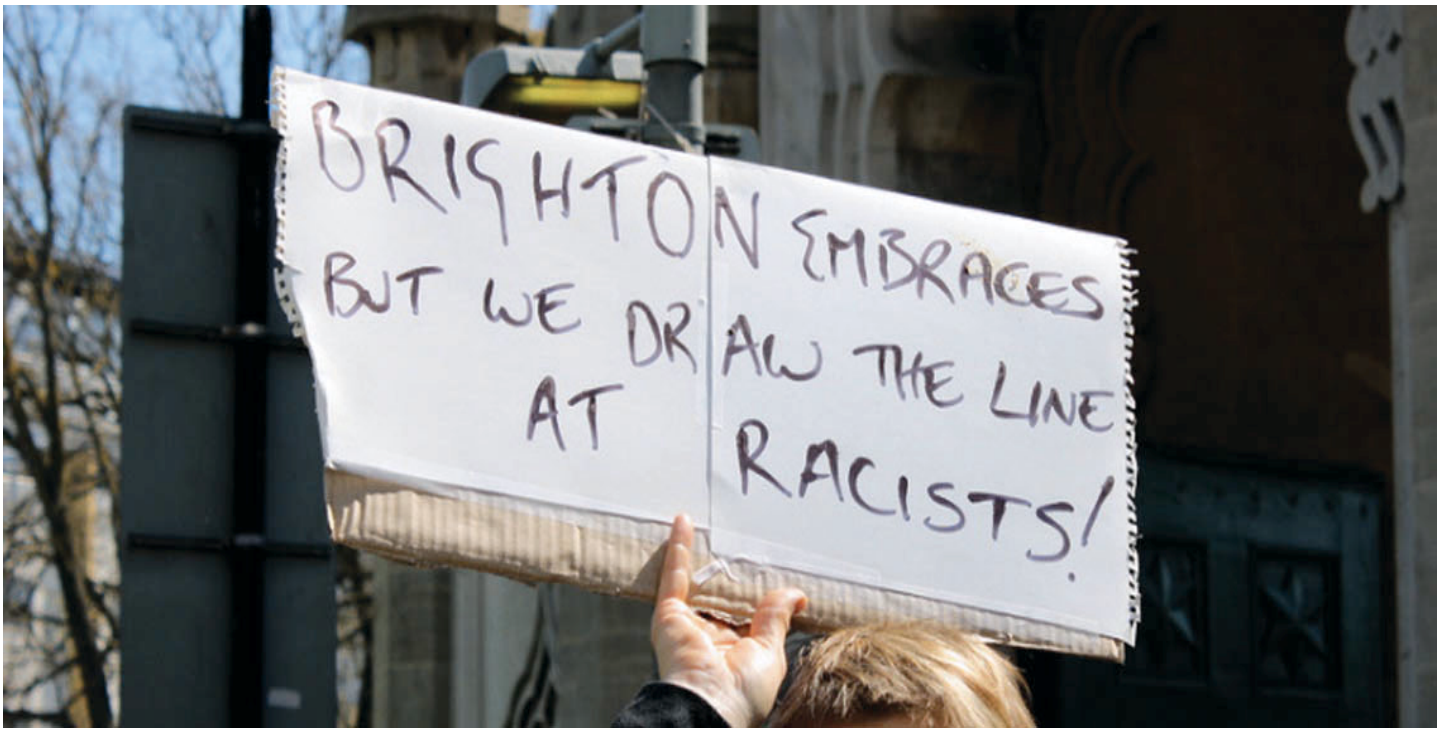 BRIGHTON EMBRACES
BUT WE DRAW THE LINE
AT RACISTS!